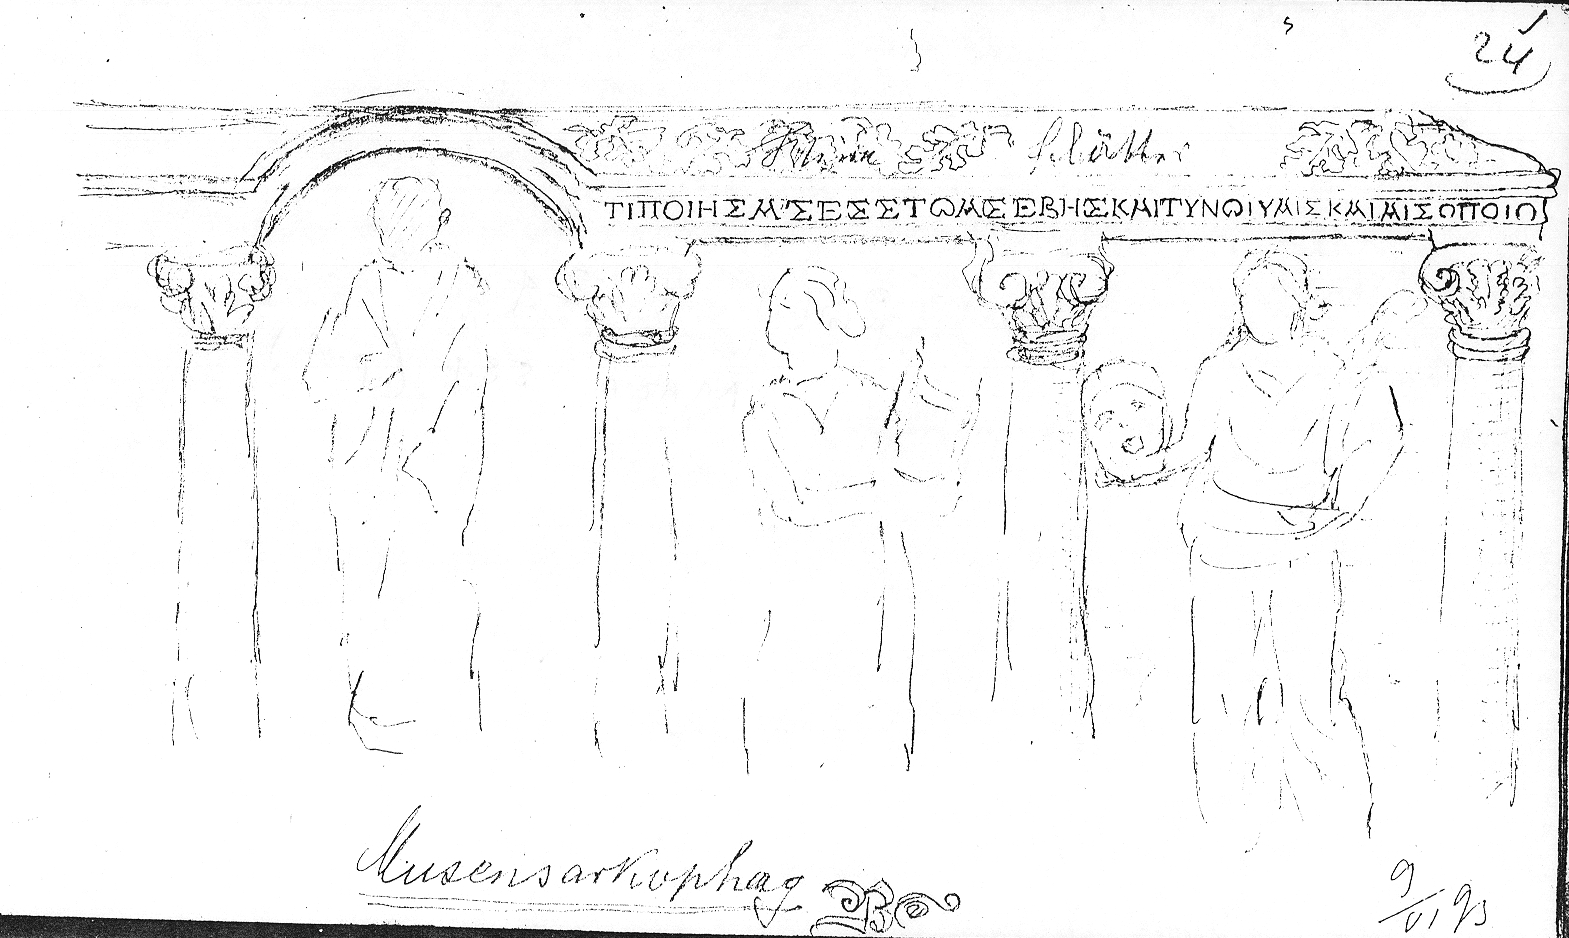 24
blätter
ΤΙΠΟΙΗΣΑΣΕΣΣΤΩΑΣΕΒΗΣΚΑΙΤΥΝΩΙΥΑΙΣΚΑΙΑΙΣΩΠΟΙΩ
Musensarkophag
9/VI 93